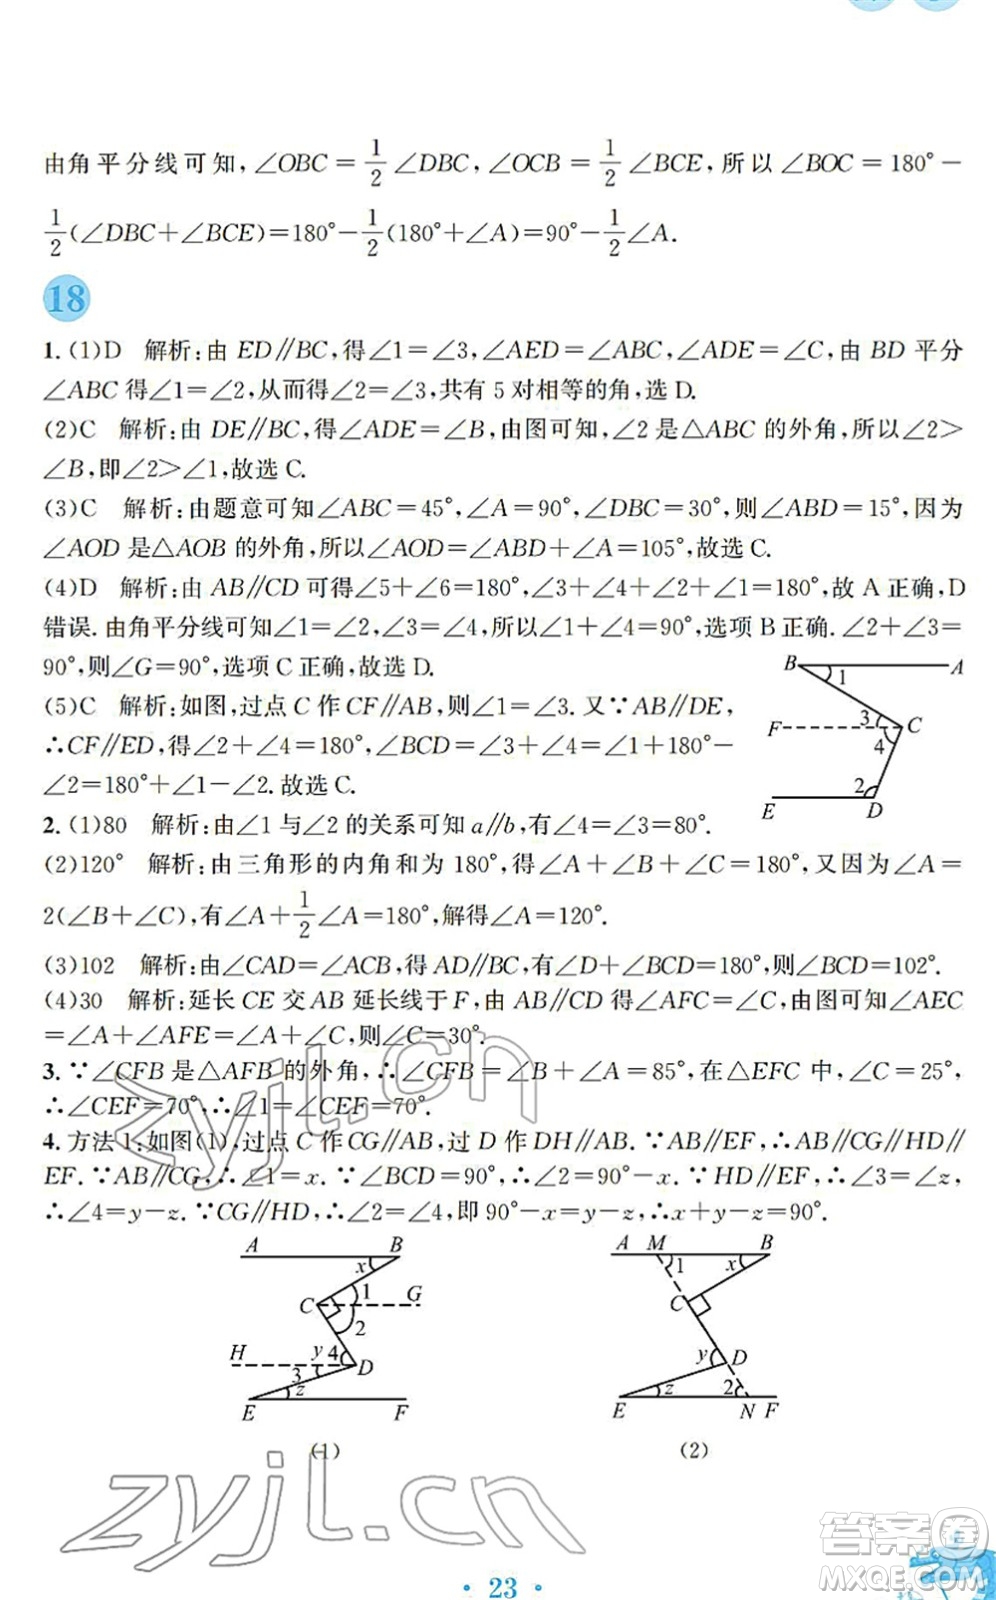 由角平分线可知，∠OBC＝1/2∠DBC，∠OCB＝1/2∠BCE，所以∠BOC＝180°－
1/2(∠DBC＋∠BCE)＝180°－1/2(180°＋∠A)＝90°－1/2∠A.
18
1. (1)D 解析：由 ED∥BC，得∠1＝∠3，∠AED＝∠ABC，∠ADE＝∠C，由 BD 平分
∠ABC 得∠1＝∠2，从而得∠2＝∠3，共有 5 对相等的角，选 D.
(2)C 解析：由 DE∥BC，得∠ADE＝∠B，由图可知，∠2 是△ABC 的外角，所以∠2＞
∠B，即∠2＞∠1，故选 C.
(3)C 解析：由题意可知∠ABC＝45°，∠A＝90°，∠DBC＝30°，则∠ABD＝15°，因为
∠AOD 是△AOB 的外角，所以∠AOD＝∠ABD＋∠A＝105°，故选 C.
(4)D 解析：由 AB∥CD 可得∠5＋∠6＝180°，∠3＋∠4＋∠2＋∠1＝180°，故 A 正确，D
错误. 由角平分线可知∠1＝∠2，∠3＝∠4，所以∠1＋∠4＝90°，选项 B 正确. ∠2＋∠3＝
90°，则∠G＝90°，选项 C 正确，故选 D.
(5)C 解析：如图，过点 C 作 CF∥AB，则∠1＝∠3. 又∵AB∥DE，
∴CF∥ED，得∠2＋∠4＝180°，∠BCD＝∠3＋∠4＝∠1＋180°－
∠2＝180°＋∠1－∠2. 故选 C.
B 1 A
F 3 C
4
2
E D
2. (1)80 解析：由∠1 与∠2 的关系可知 a∥b，有∠4＝∠3＝80°.
(2)120° 解析：由三角形的内角和为 180°，得∠A＋∠B＋∠C＝180°，又因为∠A＝
2(∠B＋∠C)，有∠A＋1/2∠A＝180°，解得∠A＝120°.
(3)102 解析：由∠CAD＝∠ACB，得 AD∥BC，有∠D＋∠BCD＝180°，则∠BCD＝102°.
(4)30 解析：延长 CE 交 AB 延长线于 F，由 AB∥CD 得∠AFC＝∠C，由图可知∠AEC
＝∠A＋∠AFE＝∠A＋∠C，则∠C＝30°.
3. ∵∠CFB 是△AFB 的外角，∴∠CFB＝∠B＋∠A＝85°，在△EFC 中，∠C＝25°，
∴∠CEF＝70°，∴∠1＝∠CEF＝70°.
4. 方法 1：如图(1)，过点 C 作 CG∥AB，过 D 作 DH∥AB. ∵AB∥EF，∴AB∥CG∥HD∥
EF. ∵AB∥CG，∴∠1＝x. ∵∠BCD＝90°，∴∠2＝90°－x. ∵HD∥EF，∴∠3＝∠z，
∴∠4＝y－z. ∵CG∥HD，∴∠2＝∠4，即 90°－x＝y－z，∴x＋y－z＝90°.
A B x
C 1 G
2
H y 4 D
3
z
E F
(1)
A M B
1 x
C
y D
z 2
E N F
(2)
zyjl.cn
zyjl.cn
答案圈
MXQE.COM
23